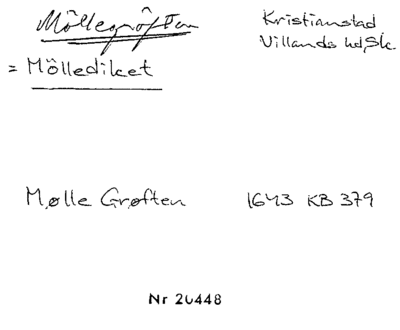 Möllegröften
Kristianstad
Villands hd, Sk.
= Möllediket
Mølle Grøften 1643 KB 379
Nr 20448